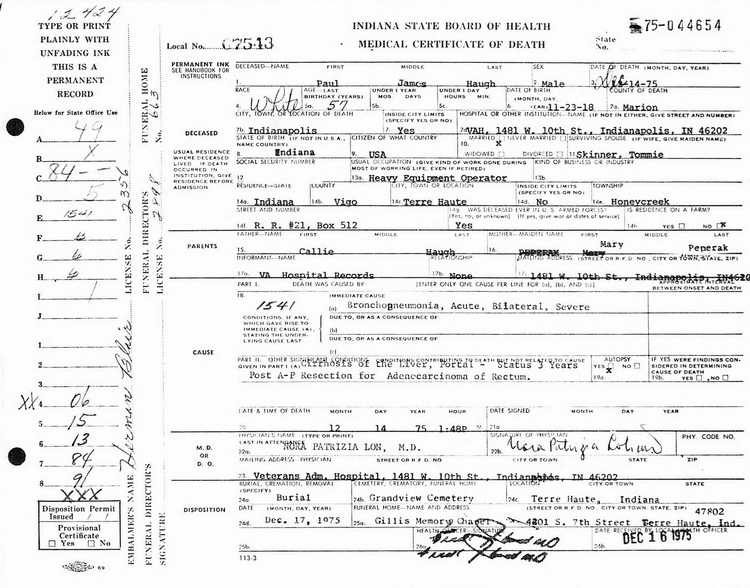 12424
TYPE OR PRINT
PLAINLY WITH
UNFADING INK
THIS IS A
PERMANENT
RECORD
Below for State Office Use
A. 49
B. X
C. 84 —
D. 5
E. 1541
F. 6
G. 6
H. 6
I. 1
XX4 06
5 15
6 13
7 84
8 91
XXX
Disposition Permit
Issued
Provisional
Certificate
☐ Yes ☐ No
EMBALMER'S NAME Herman Blair LICENSE No. 2356
FUNERAL DIRECTOR'S SIGNATURE FUNERAL DIRECTOR'S LICENSE No. FUNERAL HOME No. 663
INDIANA STATE BOARD OF HEALTH
MEDICAL CERTIFICATE OF DEATH
Local No. C7513
State No. 75-044654
PERMANENT INK
SEE HANDBOOK FOR
INSTRUCTIONS
DECEASED—NAME FIRST MIDDLE LAST SEX DATE OF DEATH (MONTH, DAY, YEAR)
1. Paul James Haugh 2. Male 3. 14-75
RACE AGE—LAST BIRTHDAY (YEARS) UNDER 1 YEAR MOS. DAYS UNDER 1 DAY HOURS MIN. DATE OF BIRTH (MONTH, DAY, YEAR) COUNTY OF DEATH
4. White 5a. 57 6. 11-23-18 7a. Marion
CITY, TOWN, OR LOCATION OF DEATH INSIDE CITY LIMITS (SPECIFY YES OR NO) HOSPITAL OR OTHER INSTITUTION—NAME (IF NOT IN EITHER, GIVE STREET AND NUMBER)
DECEASED
7b. Indianapolis 7c. Yes 7d. VAH, 1481 W. 10th St., Indianapolis, IN 46202
USUAL RESIDENCE WHERE DECEASED LIVED. IF DEATH OCCURRED IN INSTITUTION, GIVE RESIDENCE BEFORE ADMISSION
STATE OF BIRTH (IF NOT IN U.S.A., NAME COUNTRY) CITIZEN OF WHAT COUNTRY MARRIED X NEVER MARRIED ☐ SURVIVING SPOUSE (IF WIFE, GIVE MAIDEN NAME)
8. Indiana 9. USA WIDOWED ☐ DIVORCED ☐ 11. Skinner, Tommie
SOCIAL SECURITY NUMBER USUAL OCCUPATION (GIVE KIND OF WORK DONE DURING MOST OF WORKING LIFE, EVEN IF RETIRED) KIND OF BUSINESS OR INDUSTRY
12. 13a. Heavy Equipment Operator 13b.
RESIDENCE—STATE COUNTY CITY, TOWN OR LOCATION INSIDE CITY LIMITS (SPECIFY YES OR NO) TOWNSHIP
14a. Indiana 14b. Vigo 14c. Terre Haute 14d. No 14e. Honeycreek
STREET AND NUMBER 14g. WAS DECEASED EVER IN U.S. ARMED FORCES? (Yes, no, or unknown) (If yes, give war or dates of service) IS RESIDENCE ON A FARM?
14f. R. R. #21, Box 512 Yes 14h. YES ☐ NO X
PARENTS
FATHER—NAME FIRST MIDDLE LAST MOTHER—MAIDEN NAME FIRST MIDDLE LAST
15. Callie Haugh 16. Mary Peperak
INFORMANT—NAME RELATIONSHIP MAILING ADDRESS (STREET OR R.F.D. NO., CITY OR TOWN, STATE, ZIP)
17a. VA Hospital Records 17b. None 17c. 1481 W. 10th St., Indianapolis, IN46202
PART I. DEATH WAS CAUSED BY: [ENTER ONLY ONE CAUSE PER LINE FOR (a), (b), AND (c)] APPROXIMATE INTERVAL BETWEEN ONSET AND DEATH
18. IMMEDIATE CAUSE
1541 (a) Bronchopneumonia, Acute, Bilateral, Severe
CONDITIONS, IF ANY, WHICH GAVE RISE TO IMMEDIATE CAUSE (A), STATING THE UNDERLYING CAUSE LAST
DUE TO, OR AS A CONSEQUENCE OF:
(b)
DUE TO, OR AS A CONSEQUENCE OF:
(c)
CAUSE
PART II. OTHER SIGNIFICANT CONDITIONS CONDITIONS CONTRIBUTING TO DEATH BUT NOT RELATED TO CAUSE GIVEN IN PART I (A) AUTOPSY IF YES WERE FINDINGS CONSIDERED IN DETERMINING CAUSE OF DEATH
Cirrhosis of the Liver, Portal - Status 3 Years
Post A-P Resection for Adenocarcinoma of Rectum.
19a. YES X NO ☐ 19b. YES ☐ NO ☐
DATE & TIME OF DEATH MONTH DAY YEAR HOUR DATE SIGNED MONTH DAY YEAR
20. 12 14 75 1:48P M. 21a.
M.D. OR D.O.
PHYSICIAN'S NAME (TYPE OR PRINT) LAST IN ATTENDANCE SIGNATURE OF PHYSICIAN PHY. CODE NO.
NORA PATRIZIA LON, M.D. 22b. Nora Patrizia
MAILING ADDRESS—PHYSICIAN STREET OR R.F.D. NO. CITY OR TOWN STATE ZIP
23. Veterans Adm. Hospital, 1481 W. 10th St., Indianapolis, IN 46202
DISPOSITION
BURIAL, CREMATION, REMOVAL (SPECIFY) CEMETERY, CREMATORY, FUNERAL HOME LOCATION CITY OR TOWN STATE
24a. Burial 24b. Grandview Cemetery 24c. Terre Haute, Indiana
DATE (MONTH, DAY, YEAR) FUNERAL HOME—NAME AND ADDRESS (STREET OR R.F.D. NO. CITY OR TOWN, STATE, ZIP) 47802
24d. Dec. 17, 1975 25a. Gillis Memory Chapel 4201 S. 7th Street Terre Haute, Ind.
25b. HEALTH OFFICER—SIGNATURE 26a. DATE RECEIVED BY LOCAL HEALTH OFFICER 26b. DEC 16 1975
113-3